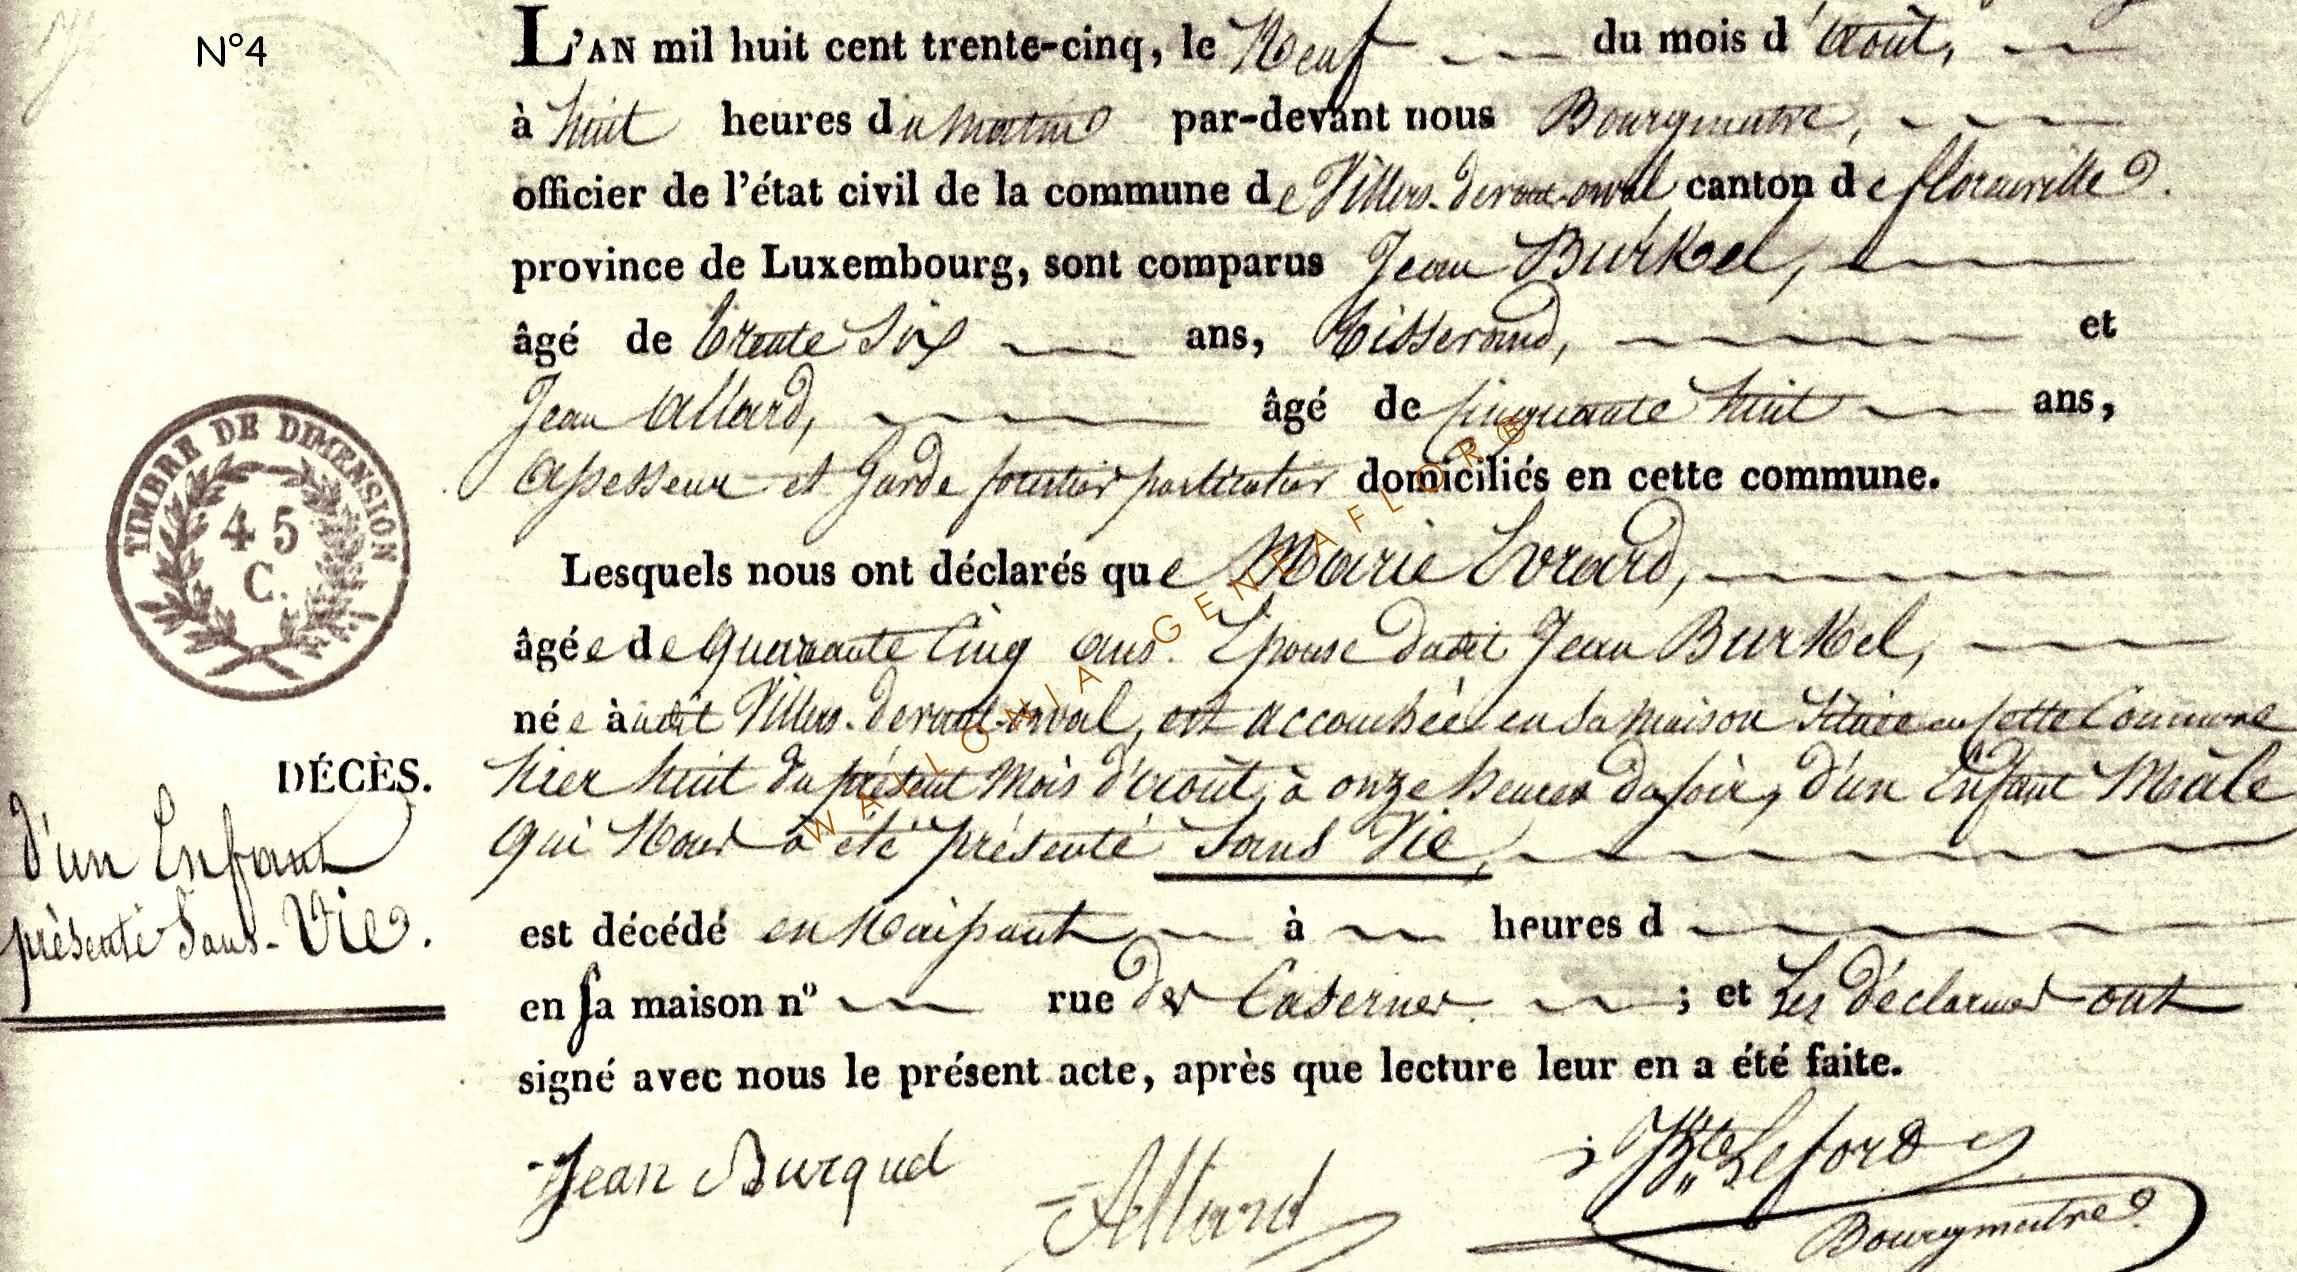 N°4
L'AN mil huit cent trente-cinq, le Neuf du mois d'Août,
à huit heures du matin par-devant nous Bourgmestre,
officier de l'état civil de la commune de Villers-devant-orval, canton de florenville.
province de Luxembourg, sont comparus Jean Burkel,
âgé de trente Six ans, tisserand, et
Jean Allard, âgé de Cinquante huit ans,
assesseur et Garde forestier particulier domiciliés en cette commune.
Lesquels nous ont déclarés que Marie Evrard,
âgée de Quarante Cinq ans. Epouse dudit Jean Burkel,
née àudit Villers-devant-orval, est accouchée en sa maison Située en Cette Commune
hier huit du présent Mois d'août, à onze heures du soir, d'un Enfant Mâle
qui Nous a été présenté Sans Vie,
est décédé en Naissant à heures d
en sa maison n° rue des Casernes. ; et Les déclarans ont
signé avec nous le présent acte, après que lecture leur en a été faite.
DÉCÈS.
d'un Enfant
présenté Sans-Vie.
TIMBRE DE DIMENSION
45
C.
Jean Burquel
Allard
Bourgmestre
WALLONIA GENEAFLOR®